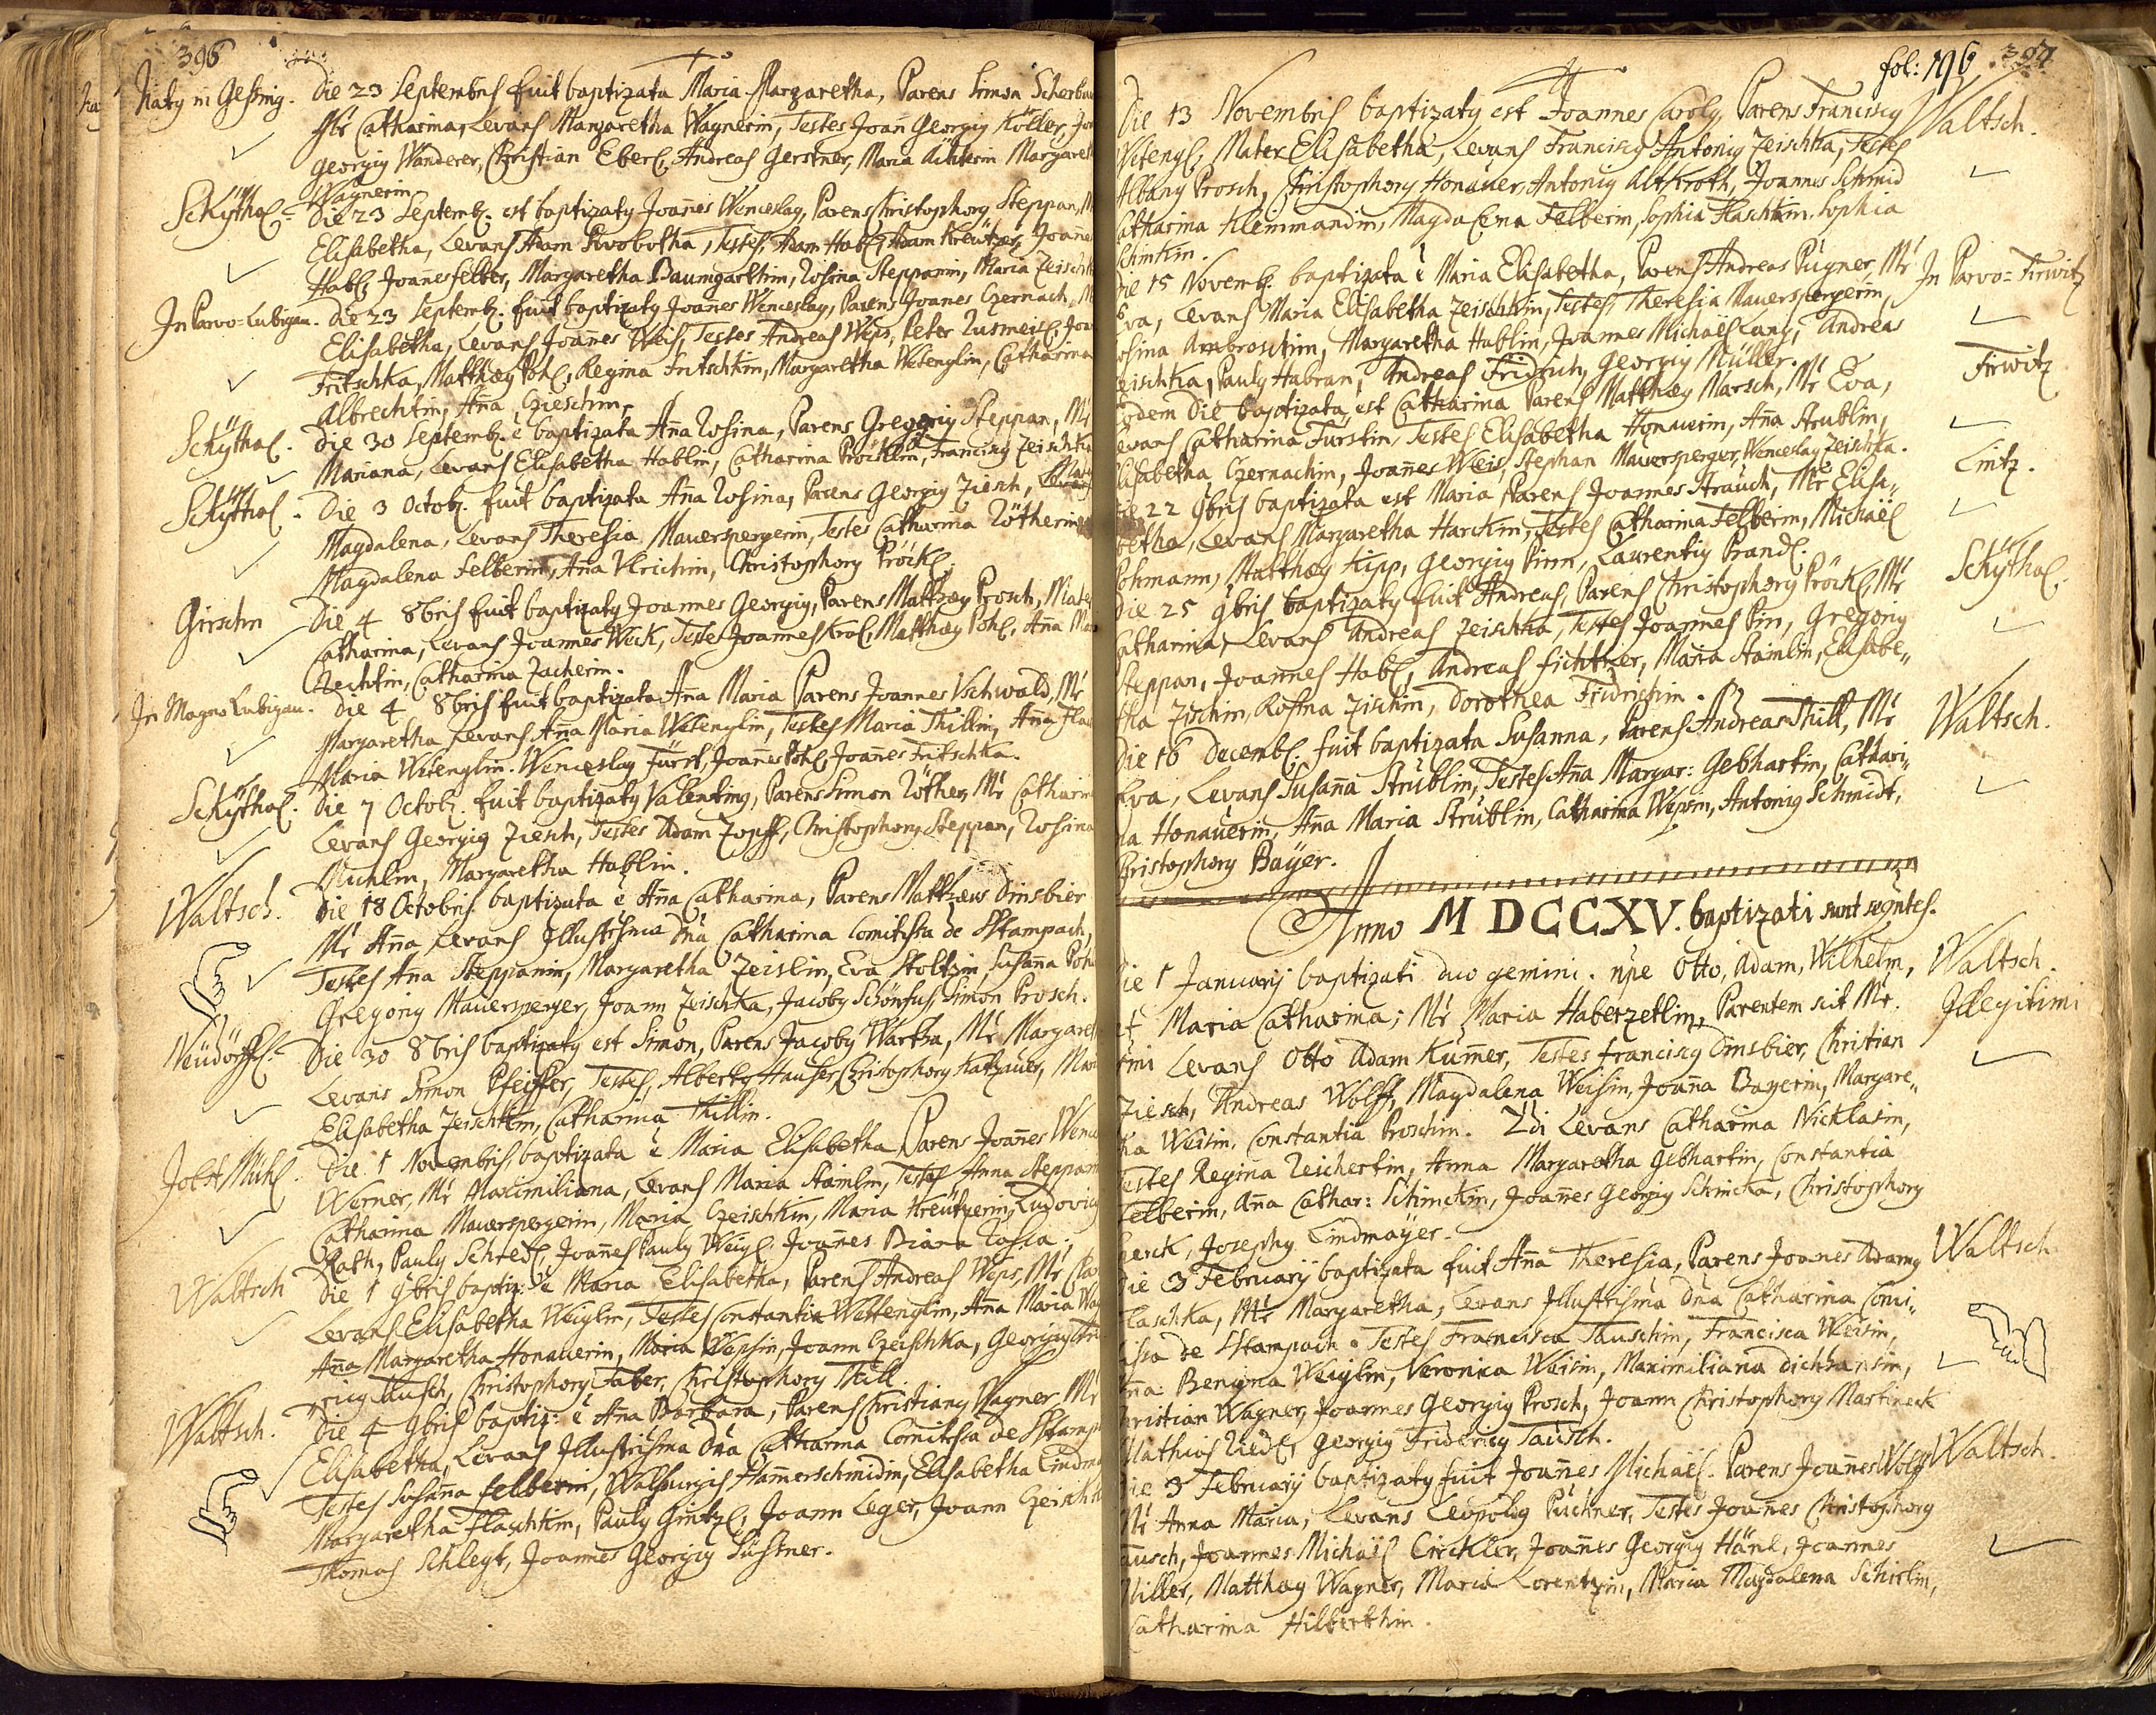 396
Natq in Gessing. Die 23 Septembris fuit baptizata Maria Margaretha, Parens Simon
Mr Catharina, Levans Margaretha Wagnerin, Testes Joan Georgiq Köller,
Georgiq Wanderer, Christian Eberl, Andreas Gerstner, Maria Margare
Wagnerin.
Schÿthal. Die 23 Septemb. est baptizatq Joanes Wenceslaq, Parens Christophorq Steppan,
Elisabetha, Levans Adam Swobotha, Testes, Adam Habl, Adam Kreützer, Joane
Habl, Joanes felber, Margaretha Baumgarthin, Rosina Steppanin, Maria
In Parvo-Lubigau. Die 23 Septemb. fuit baptizatq Joanes Wenceslaq, Parens Joanes Czernach,
Elisabetha, Levans Joanes Weis, Testes Andreas Weps, Peter
Fritschka, Matthæq Pohl, Regina Fritschkin, Margaretha Wetenglin, Catharina
Albrechtin, Aña
Schÿthal. Die 30 Septemb. è baptizata Aña Rosina, Parens Gregoriq Steppan, Mr
Mariana, Levans Elisabetha Hablin, Catharina Pröcklin, Franciscq Zeischka
Schÿthal. Die 3 Octob. fuit baptizata Aña Rosina, Parens Georgiq Ziesch,
Magdalena, Levans Theresia Mauerspergerin, Testes Catharina Rötherin
Magdalena Felberin, Aña Ulrichin, Christophorq Pröckl.
Girschn Die 4 8bris fuit baptizatq Joannes Georgiq, Parens Matthæq Prosch, Mate
Catharina, Levans Joannes Weck, Testes Joannes Krol, Matthæq Pohl, Aña
Catharina Zacherin.
In Magno Lubigau. Die 4 8bris fuit baptizata Aña Maria Parens Joannes Uschwald, Mr
Margaretha Levans Aña Maria Wetenglin, Testes Maria Thillin, Aña
Maria Wetenglin. Wenceslaq Fürst, Joanes Pohl, Joanes Fritschka.
Schÿthal. Die 7 Octob. fuit baptizatq Valentinq, Parens Simon Röther, Mr Catharin
Levans Georgiq Ziesch, Testes Adam Zopff, Christophorq Steppan, Rosina
Michlin, Margaretha Hablin.
Waltsch. Die 18 Octobris baptizata è Aña Catharina, Parens Matthæus Dinsbier
Mr Aña Levans Illustrissima Dña Catharina Comitissa de Stampach,
Testes Ana Steppanin, Margaretha Zeislin, Eva Stoltzin Susaña
Gregoriq Mauersperger, Joann Zeischka, Jacobq Schönfus, Simon Prosch.
Neüdörffl. Die 30 8bris baptizatq est Simon, Parens Jacobq Wartha, Mr Margaret
Levans Simon Pfeiffer, Testes, Albertq Hauser, Christophorq Katzauer,
Elisabetha Zeischkin, Catharina Thillin.
Jobst Mühl. Die 1 Novembris, baptizata è Maria Elisabetha, Parens Joañes
Werner, Mr Maximiliana, Levans Maria Stainlin, Testes Anna Steppan
Catharina Mauerspergerin, Maria Czeischkin, Maria Kreützerin, Ludovicq
Rath, Paulq Schredl, Joañes Paulq Weigl, Joañes Biana
Waltsch Die 1 9bris baptiz: è Maria Elisabetha, Parens Andreas Weps, Mr
Levans Elisabetha Weiglin, Testes Constantia Wettenglin, Aña Maria
Aña Margaretha Honauerin, Maria Wepsin, Joann Czeischka, Georgiq
Musch, Christophorq Faber, Christophorq Thill.
Waltsch. Die 4 9bris baptiz: è Aña Barbara, Parens Christianq Wagner Mr
Elisabetha, Levans Illustrissima Dña Catharina Comitissa de Stamp
Testes Susaña Felberin, Walpurgis Hamerschmidin, Elisabetha
Margaretha Flaschkin, Paulq Gintzl, Joann Leger, Joann Czeischk
Thomas Schlegt, Joannes Georgiq Süssner.
fol: 196 397
Die 13 Novembris baptizatq est Joannes Carolq, Parens Franciscq Waltsch.
Wetengl, Mater Elisabetha, Levans Franciscq Antoniq Zeischka, Testes
Albanq Prosch, Christophorq Honauer, Antoniq Altkroth, Joannes Schmid
Catharina Klemmandin, Magdalena Felberin, Sophia Flaschkin. Sophia
Schinkin.
Die 15 Novemb. baptizata è Maria Elisabetha, Parens Andreas Pügner, Mr In Parvo-Tirwitz
Eva, Levans Maria Elisabetha Zeischkin, Testes, Theresia Mauerspergerin,
Rosina Ambroschin, Margaretha Hablin, Joannes Michaël Lang, Andreas
Zeischka, Paulq Habran, Andreas Fridrich, Georgiq Müller. Tirwitz
Eodem Die baptizata est Catharina Parens Matthæq Marsch, Mr Eva,
Levans Catharina Fürstin, Testes Elisabetha Honauerin, Aña Strublin,
Elisabetha Czernachin, Joañes Weis, Stephan Mauersperger, Wenceslaq Zeischka.
Die 22 9bris baptizata est Maria Parens Joannes Strauch, Mr Elisa- Lintz.
betha, Levans Margaretha Harckin, Testes Catharina Felberin, Michaël
Pohmann, Matthæq Kipp, Georgiq Pinn, Laurentiq Prandl.
Die 25 9bris baptizatq fuit Andreas, Parens Christophorq Pröckl, Mr Schÿthal.
Catharina, Levans Andreas Zeischka, Testes Joannes Pin, Gregoriq
Steppan, Joannes Habl, Andreas fichtner, Maria Stainlin, Elisabe-
tha Zischin, Rosina Zischin, Dorothea Fridrichin.
Die 16 Decemb. fuit baptizata Susanna, Parens Andreas Thill, Mr Waltsch.
Eva, Levans Susaña Strüblin, Testes Aña Margar: Gebhartin, Cathari-
na Honauerin, Aña Maria Strüblin, Catharina Wepsin, Antoniq Schmidt,
Christophorq Baÿer.
Anno MDCCXV. baptizati sunt seqntes.
Die 1 Januarij baptizati duo gemini. npe Otto, Adam, Wilhelm, Waltsch.
et Maria Catharina; Mr Maria Haberzetlin, Parentem scit Mr. Illegitimi
1mi Levans Otto Adam Kumer, Testes franciscq Dinsbier, Christian
Ziesch, Andreas Wolff, Magdalena Weisin, Joaña Bayerin, Margare-
tha Weisin, Constantia Proschin. 2di Levans Catharina Nicklasin,
Testes Regina Reichertin, Anna Margaretha Gebhartin, Constantia
Felberin, Aña Cathar: Schinckin, Joañes Georgiq Schincka, Christophorq
Josephq Lindmaÿer.
Die 3 Februarij baptizata fuit Aña Theresia, Parens Joanes Adamq Waltsch.
Flaschka, Mr Margaretha, Levans Illustrissima Dña Catharina Comi-
tissa de Stampach. Testes Francisca Tauschin, Francisca Weisin,
Aña Benigna Weiglin, Veronica Weisin, Maximiliana
Christian Wagner, Joannes Georgiq Prosch, Joann Christophorq Martineck
Mathias Riedl, Georgiq Fridericq Tausch.
Die 3 Februarij baptizatq fuit Joannes Michaël. Parens Joañes Waltsch.
Mr Anna Maria, Levans Leopoldq Püchner, Testes Joanes Christophorq
Tausch, Joannes Michaël Circkler, Joañes Georgiq Hänl, Joannes
Miller, Matthæq Wagner, Maria Lorentzin, Maria Magdalena Schirlin,
Catharina Hilberthin.